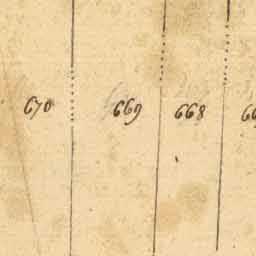 670 669 668